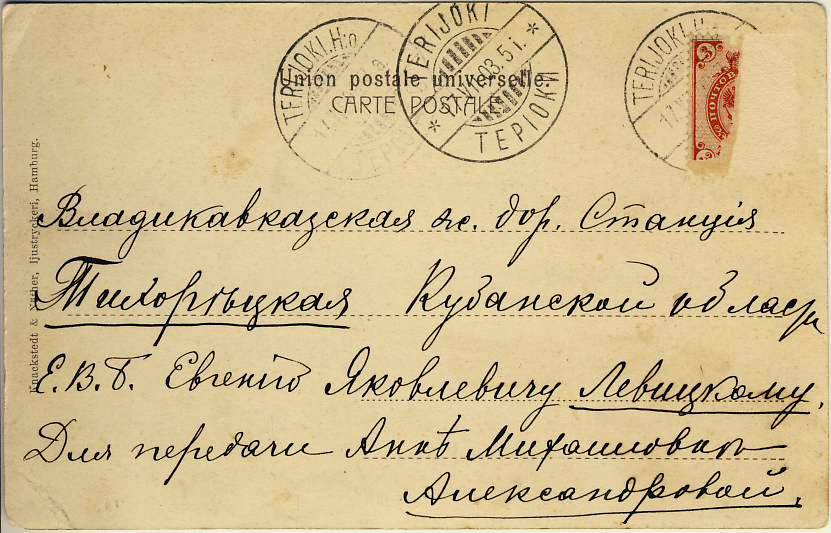 TERIJOKI.H:o
TERIJOKI
17.VII.03.5 i.
ТЕРІОКИ
TERIJOKI.H
17.V
3
ПОЧТОВ
Union postale universelle.
CARTE POSTALE.
Knackstedt & Näther, ljustryckeri, Hamburg.
Владикавказская ж. дор. Станція
Тихорѣцкая Кубанской области
Е. В. Б. Евгенію Яковлевичу Левицкому.
Для передачи Аннѣ Михайловнѣ
Александровой.